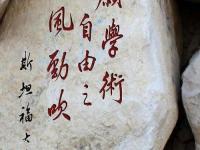 願學術
自由之
風勁吹
斯坦福大